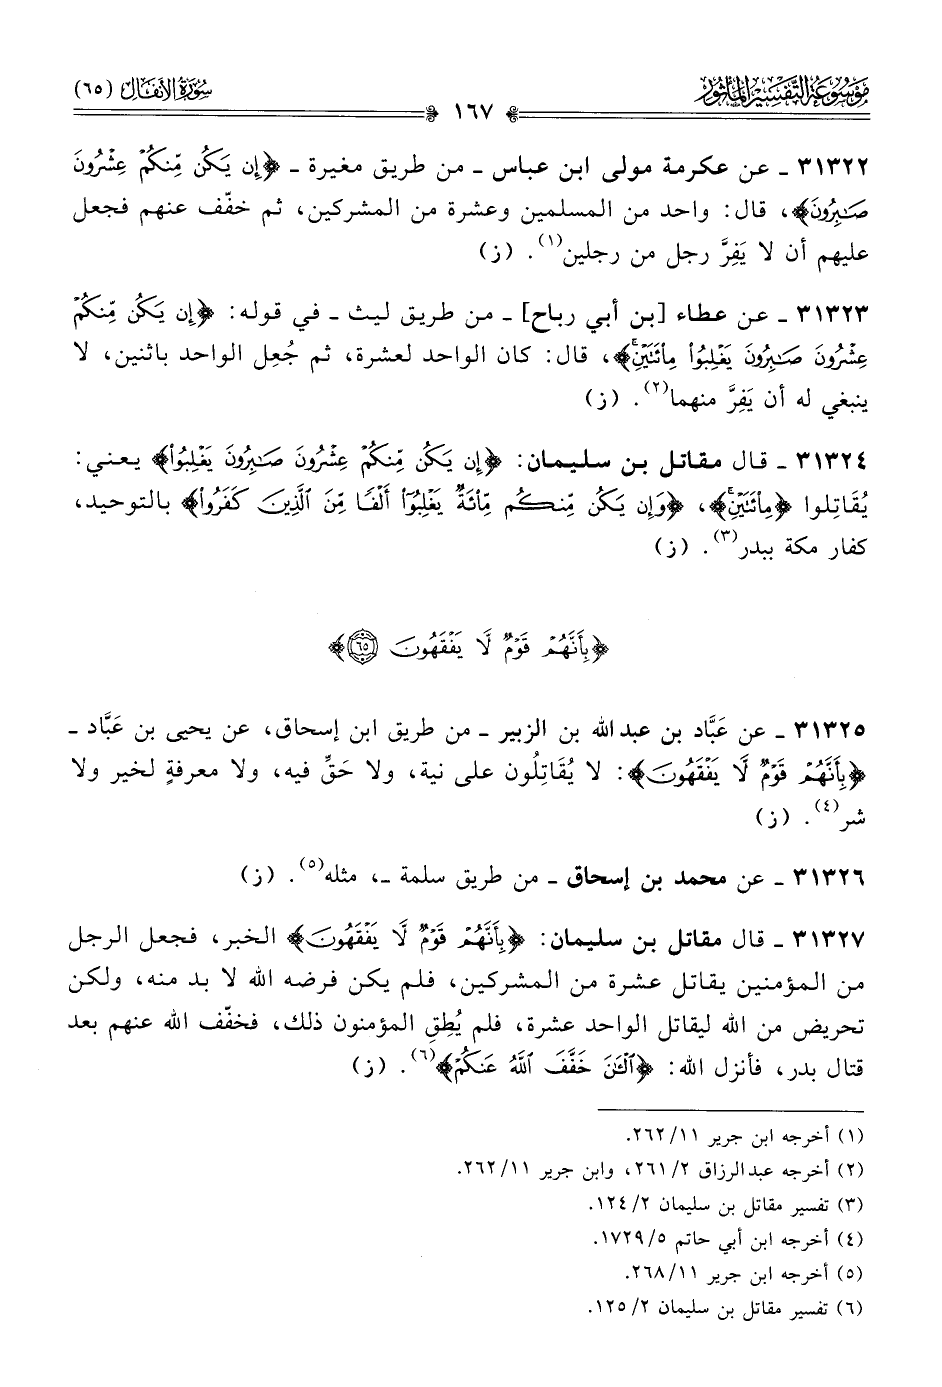 مَوْسُوعَة التَّفْسِيْر المَأْثُور
١٦٧
سُورَةُ الأَنفَال (٦٥)
٣١٣٢٢ ـ عن عكرمة مولى ابن عباس ـ من طريق مغيرة ـ ﴿إِن يَكُن مِّنكُمْ عِشْرُونَ
صَـٰبِرُونَ﴾، قال: واحد من المسلمين وعشرة من المشركين، ثم خفّف عنهم فجعل
عليهم أن لا يَفِرَّ رجل من رجلين(١). (ز)
٣١٣٢٣ ـ عن عطاء [بن أبي رباح] ـ من طريق ليث ـ في قوله: ﴿إِن يَكُن مِّنكُمْ
عِشْرُونَ صَـٰبِرُونَ يَغْلِبُوا۟ مِا۟ئَتَيْنِۚ﴾، قال: كان الواحد لعشرة، ثم جُعِل الواحد باثنين، لا
ينبغي له أن يَفِرَّ منهما(٢). (ز)
٣١٣٢٤ ـ قال مقاتل بن سليمان: ﴿إِن يَكُن مِّنكُمْ عِشْرُونَ صَـٰبِرُونَ يَغْلِبُوا۟﴾ يعني:
يُقَاتِلوا ﴿مِا۟ئَتَيْنِۚ﴾، ﴿وَإِن يَكُن مِّنكُم مِّا۟ئَةٌ يَغْلِبُوٓا۟ أَلْفًا مِّنَ ٱلَّذِينَ كَفَرُوا۟﴾ بالتوحيد،
كفار مكة ببدر(٣). (ز)
﴿بِأَنَّهُمْ قَوْمٌ لَّا يَفْقَهُونَ ٦٥﴾
٣١٣٢٥ ـ عن عَبَّاد بن عبد الله بن الزبير ـ من طريق ابن إسحاق، عن يحيى بن عَبَّاد ـ
﴿بِأَنَّهُمْ قَوْمٌ لَّا يَفْقَهُونَ﴾: لا يُقَاتِلُون على نية، ولا حَقٍّ فيه، ولا معرفةٍ لخير ولا
شر(٤). (ز)
٣١٣٢٦ ـ عن محمد بن إسحاق ـ من طريق سلمة ـ، مثله(٥). (ز)
٣١٣٢٧ ـ قال مقاتل بن سليمان: ﴿بِأَنَّهُمْ قَوْمٌ لَّا يَفْقَهُونَ﴾ الخبر، فجعل الرجل
من المؤمنين يقاتل عشرة من المشركين، فلم يكن فرضه الله لا بد منه، ولكن
تحريض من الله ليقاتل الواحد عشرة، فلم يُطِقِ المؤمنون ذلك، فخفّف الله عنهم بعد
قتال بدر، فأنزل الله: ﴿ٱلْـَٔـٰنَ خَفَّفَ ٱللَّهُ عَنكُمْ﴾(٦). (ز)
(١) أخرجه ابن جرير ١١/ ٢٦٢.
(٢) أخرجه عبد الرزاق ٢/ ٢٦١، وابن جرير ١١/ ٢٦٢.
(٣) تفسير مقاتل بن سليمان ٢/ ١٢٤.
(٤) أخرجه ابن أبي حاتم ٥/ ١٧٢٩.
(٥) أخرجه ابن جرير ١١/ ٢٦٨.
(٦) تفسير مقاتل بن سليمان ٢/ ١٢٥.